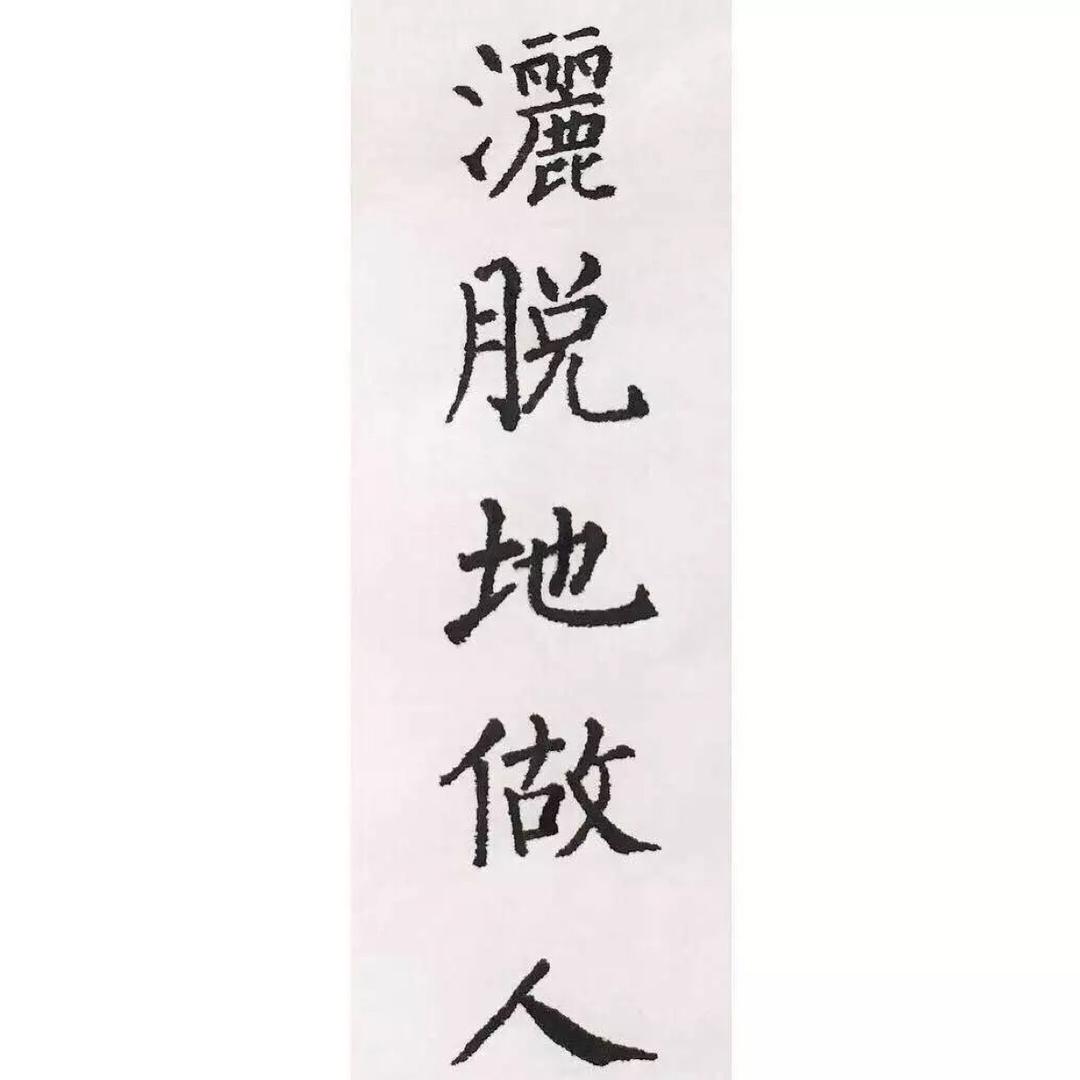 灑脱地做人